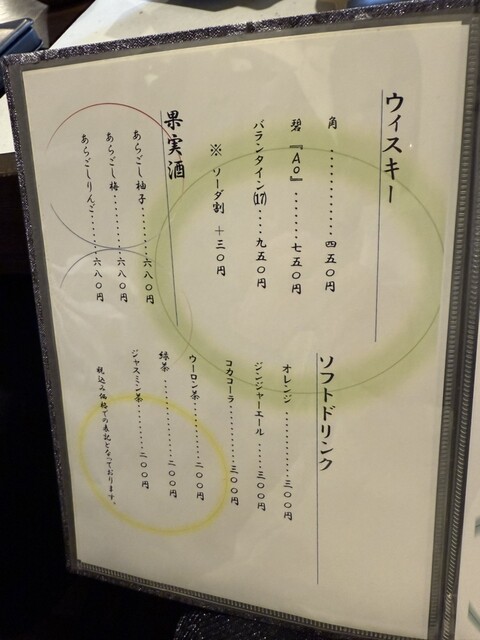 ウィスキー
角 ............ 四五〇円
碧『Ao』 ....... 七五〇円
バランタイン(17) ..... 九五〇円
※ ソーダ割 +三〇円
果実酒
あらごし柚子 ...... 六八〇円
あらごし梅 ........ 六八〇円
あらごしりんご ..... 六八〇円
ソフトドリンク
オレンジ ........... 三〇〇円
ジンジャーエール .... 三〇〇円
コカコーラ .......... 三〇〇円
ウーロン茶 ......... 二〇〇円
緑茶 ............. 二〇〇円
ジャスミン茶 ........ 二〇〇円
税込み価格での表記となっております。